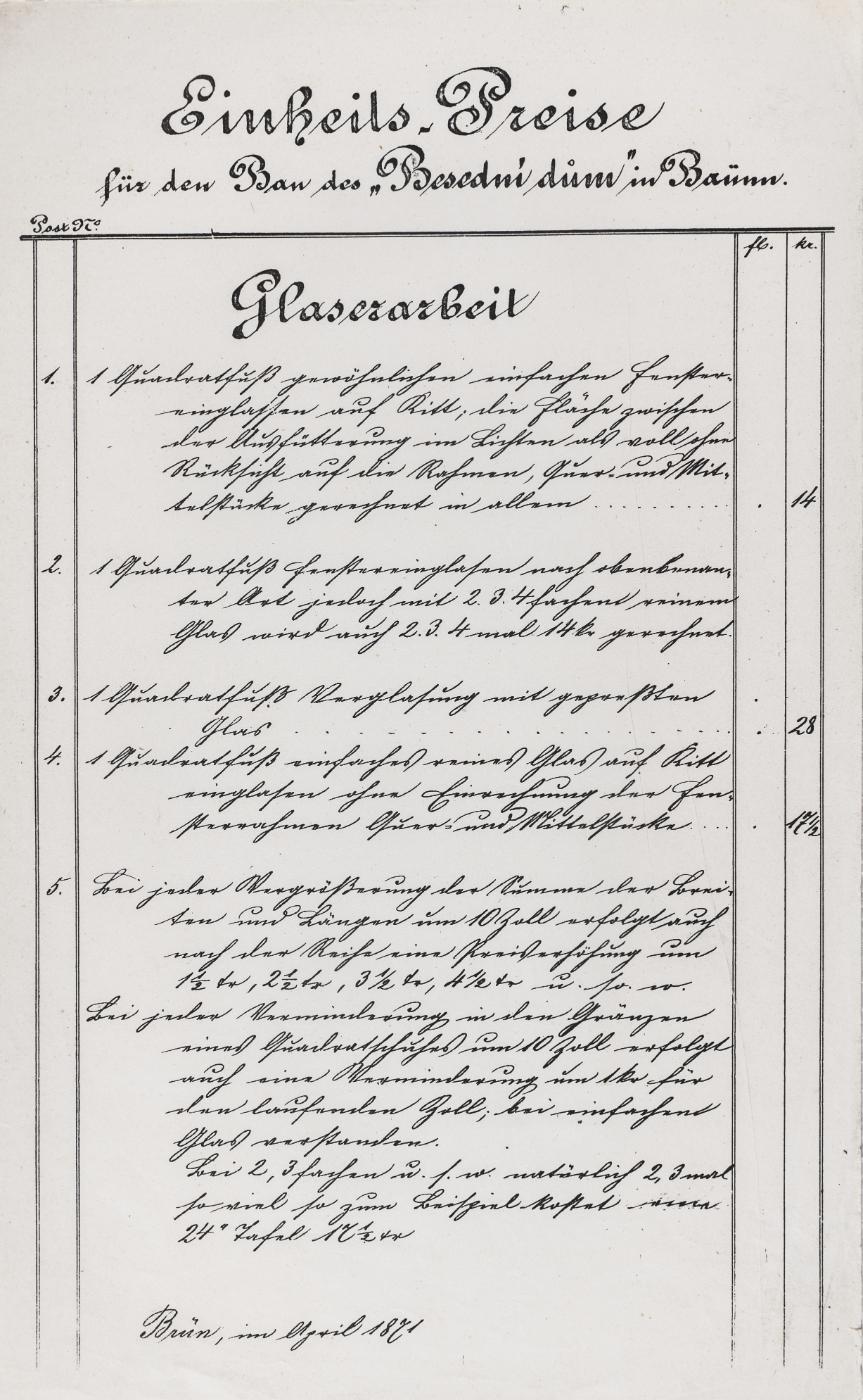 Einheits-Preise
für den Bau des „Besední dům" in Baünn.
Post No. fl. kr.
Glaserarbeit
1. 1 Quadratfuß gewöhnlichen einfachen Fenster-
einglassen auf Kitt; die Fläche zwischen
der Ausfütterung im Lichten als voll ohne
Rücksicht auf die Rahmen, Quer- und Mit-
telstücke gerechnet in allem . . . . . . . . . . 14
2. 1 Quadratfuß Fenstereinglasen nach obenbenan-
ter Art jedoch mit 2. 3. 4 fachent reinem
Glas wird auch 2. 3. 4 mal 14 kr gerechnet.
3. 1 Quadratfuß Verglasung mit gepreßten
Glas . . . . . . . . . . . . . . . 28
4. 1 Quadratfuß einfaches reines Glas auf Kitt
einglasen ohne Einrechnung der Fen-
sterrahmen Quer- und Mittelstücke . . . . 17½
5. Bei jeder Vergrößerung der Summe der Brei-
ten und Längen um 10 Zoll erfolgt auch
nach der Reihe eine Preiserhöhung um
1½ kr, 2½ kr, 3½ kr, 4½ kr u. so. w.
Bei jeder Verminderung in den Gränzen
eines Quadratschuhes um 10 Zoll erfolgt
auch eine Verminderung um 1 kr für
den laufenden Zoll; bei einfachent
Glas verstanden.
Bei 2, 3 fachen u. s. w. natürlich 2, 3 mal
so viel so zum Beispiel kostet eine
24" Tafel 17½ kr
Brün, im April 1871